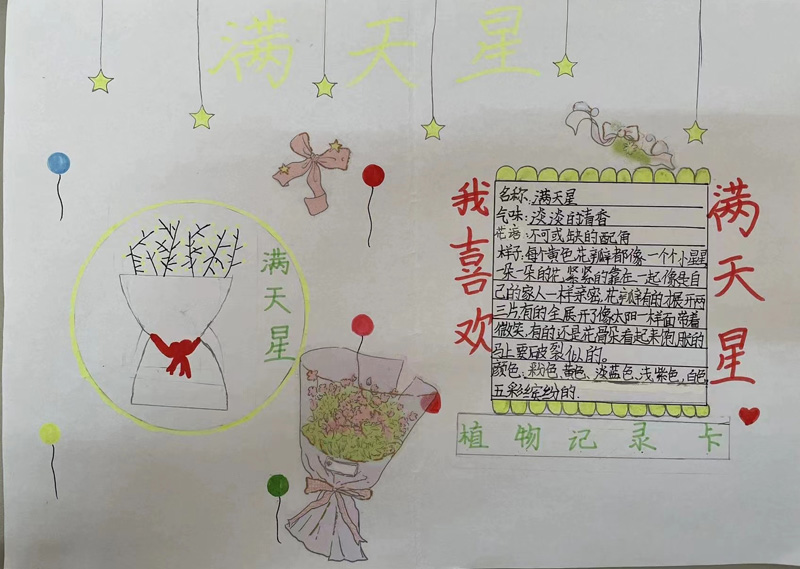 满天星
满天星
我喜欢
名称:满天星
气味:淡淡的清香
花语:不可或缺的配角
样子:每个黄色花瓣都像一个个小星星
一朵一朵的花紧紧的靠在一起像是自
己的家人一样亲密,花瓣有的才展开两
三片有的全展开了像太阳一样面带着
微笑.有的还是花骨朵看起来饱胀的
马上要破裂似的。
颜色:粉色.黄色、淡蓝色.浅紫色,白色
五彩缤纷的.
满天星
植物记录卡